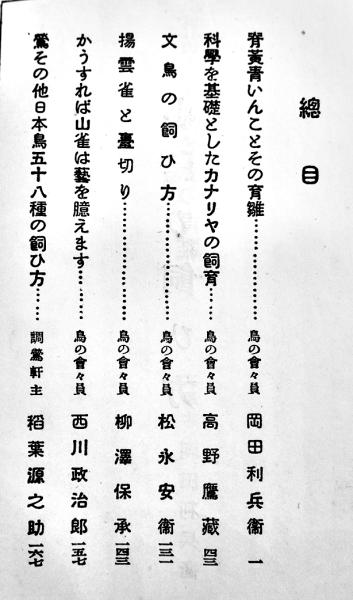 總目
脊黃青いんことその育雛……………鳥の會々員 岡田利兵衞 一
科學を基礎としたカナリヤの飼育……鳥の會々員 高野鷹藏 四三
文鳥の飼ひ方……………………鳥の會々員 松永安衞 一三一
揚雲雀と臺切り…………………鳥の會々員 柳澤保承 一四三
かうすれば山雀は藝を臆えます……鳥の會々員 西川政治郎 一五七
鶯その他日本鳥五十八種の飼ひ方……調鶯軒主 稻葉源之助 一六七